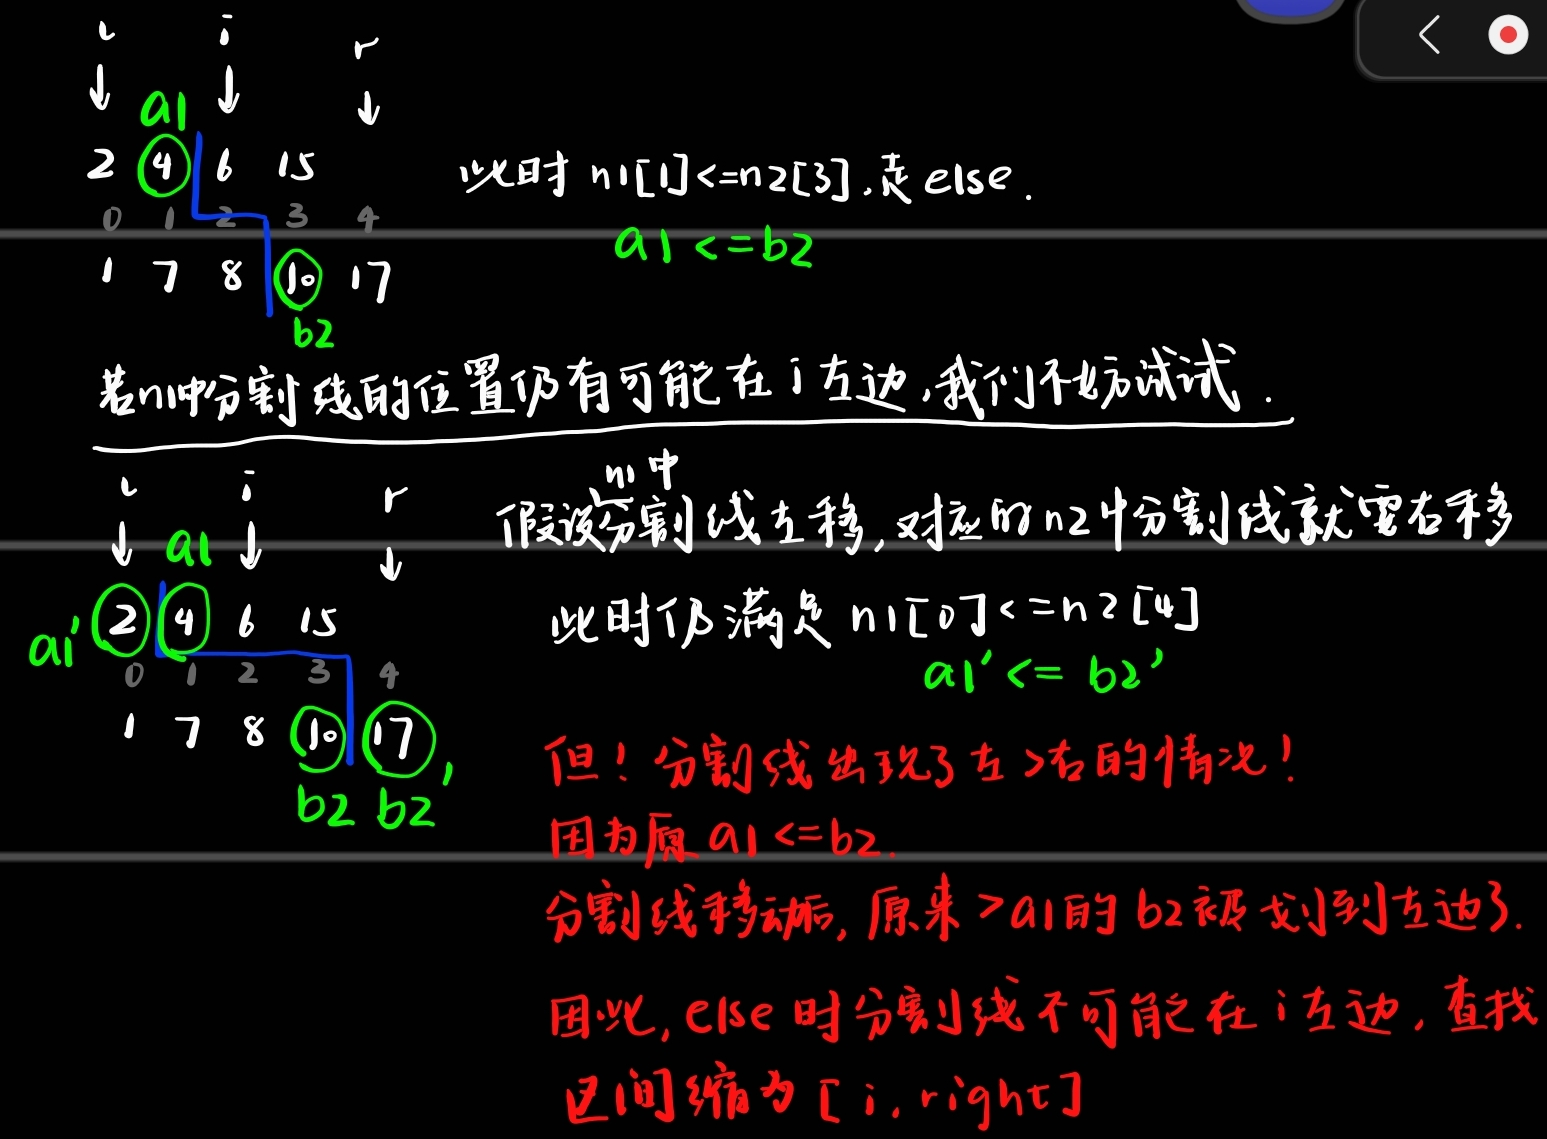 l i r
↓ a1 ↓ ↓
2 4 6 15
0 1 2 3 4
1 7 8 10 17
b2
此时 n1[1]<=n2[3],走else.
a1<=b2
若n1中分割线的位置仍有可能在i左边,我们不妨试试.
l i r
↓ a1 ↓ ↓
a1' 2 4 6 15
0 1 2 3 4
1 7 8 10 17
b2 b2'
假设n1中分割线左移,对应的n2中分割线就要右移
此时仍满足 n1[0]<=n2[4]
a1'<=b2'
但!分割线出现了左>右的情况!
因为原a1<=b2.
分割线移动后,原来>a1的b2被划到左边了.
因此,else时分割线不可能在i左边,查找
区间缩为[i,right]